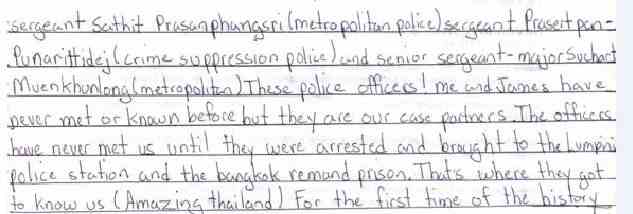 sergeant Sathit Prasanphangsri (metropolitan police) sergeant Prasert pan=
Punarittidej (crime suppression police) and senior sergeant-major Suchart
Muenkhunlong (metropolitan) These police officers! me and James have
never met or known before but they are our case partners. The officers
have never met us until they were arrested and brought to the Lumpni
police station and the bangkok remand prison. That's where they got
to know us (Amazing thailand) For the first time of the history